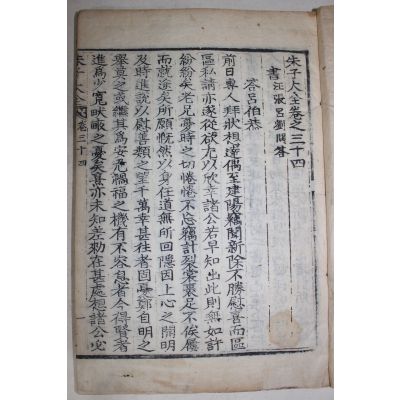 朱子大全卷之三十四
書 汪張呂劉問答
答呂伯恭
前日專人拜狀想達偶至建陽竊聞新除不勝慰喜而區
區私請亦遂從欲尤以欣幸諸公若早知出此則無如許
紛紛矣老兄憂時之切惓惓不忘竊計裂裳裹足不俟屨
而就途矣所願慨然以身任道無所回隱因上心之開明
及時進說以慰善類之望千萬幸甚往者固憂鄭自明之
舉莫之或繼其爲安危禍福之機有不容息者今得賢者
進爲少寬畎畝之憂矣熹亦未知差勑在甚處想諸公必
朱子大全 卷三十四